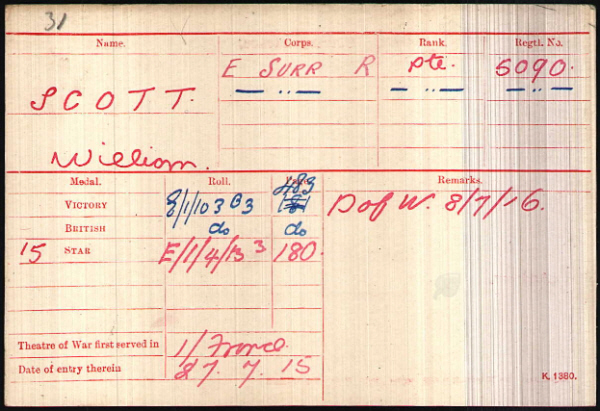 31
Name. Corps. Rank. Regtl. No.
E SURR R Pte. 5090.
SCOTT. — " — — " — — " —
William.
Medal. Roll. Page. Remarks.
483
VICTORY E/1/103 B3 181 D of W. 8/7/16.
BRITISH do do
15 STAR E/1/4/B3 180.
Theatre of War first served in 1/ France.
Date of entry therein 27. 7. 15
K. 1380.